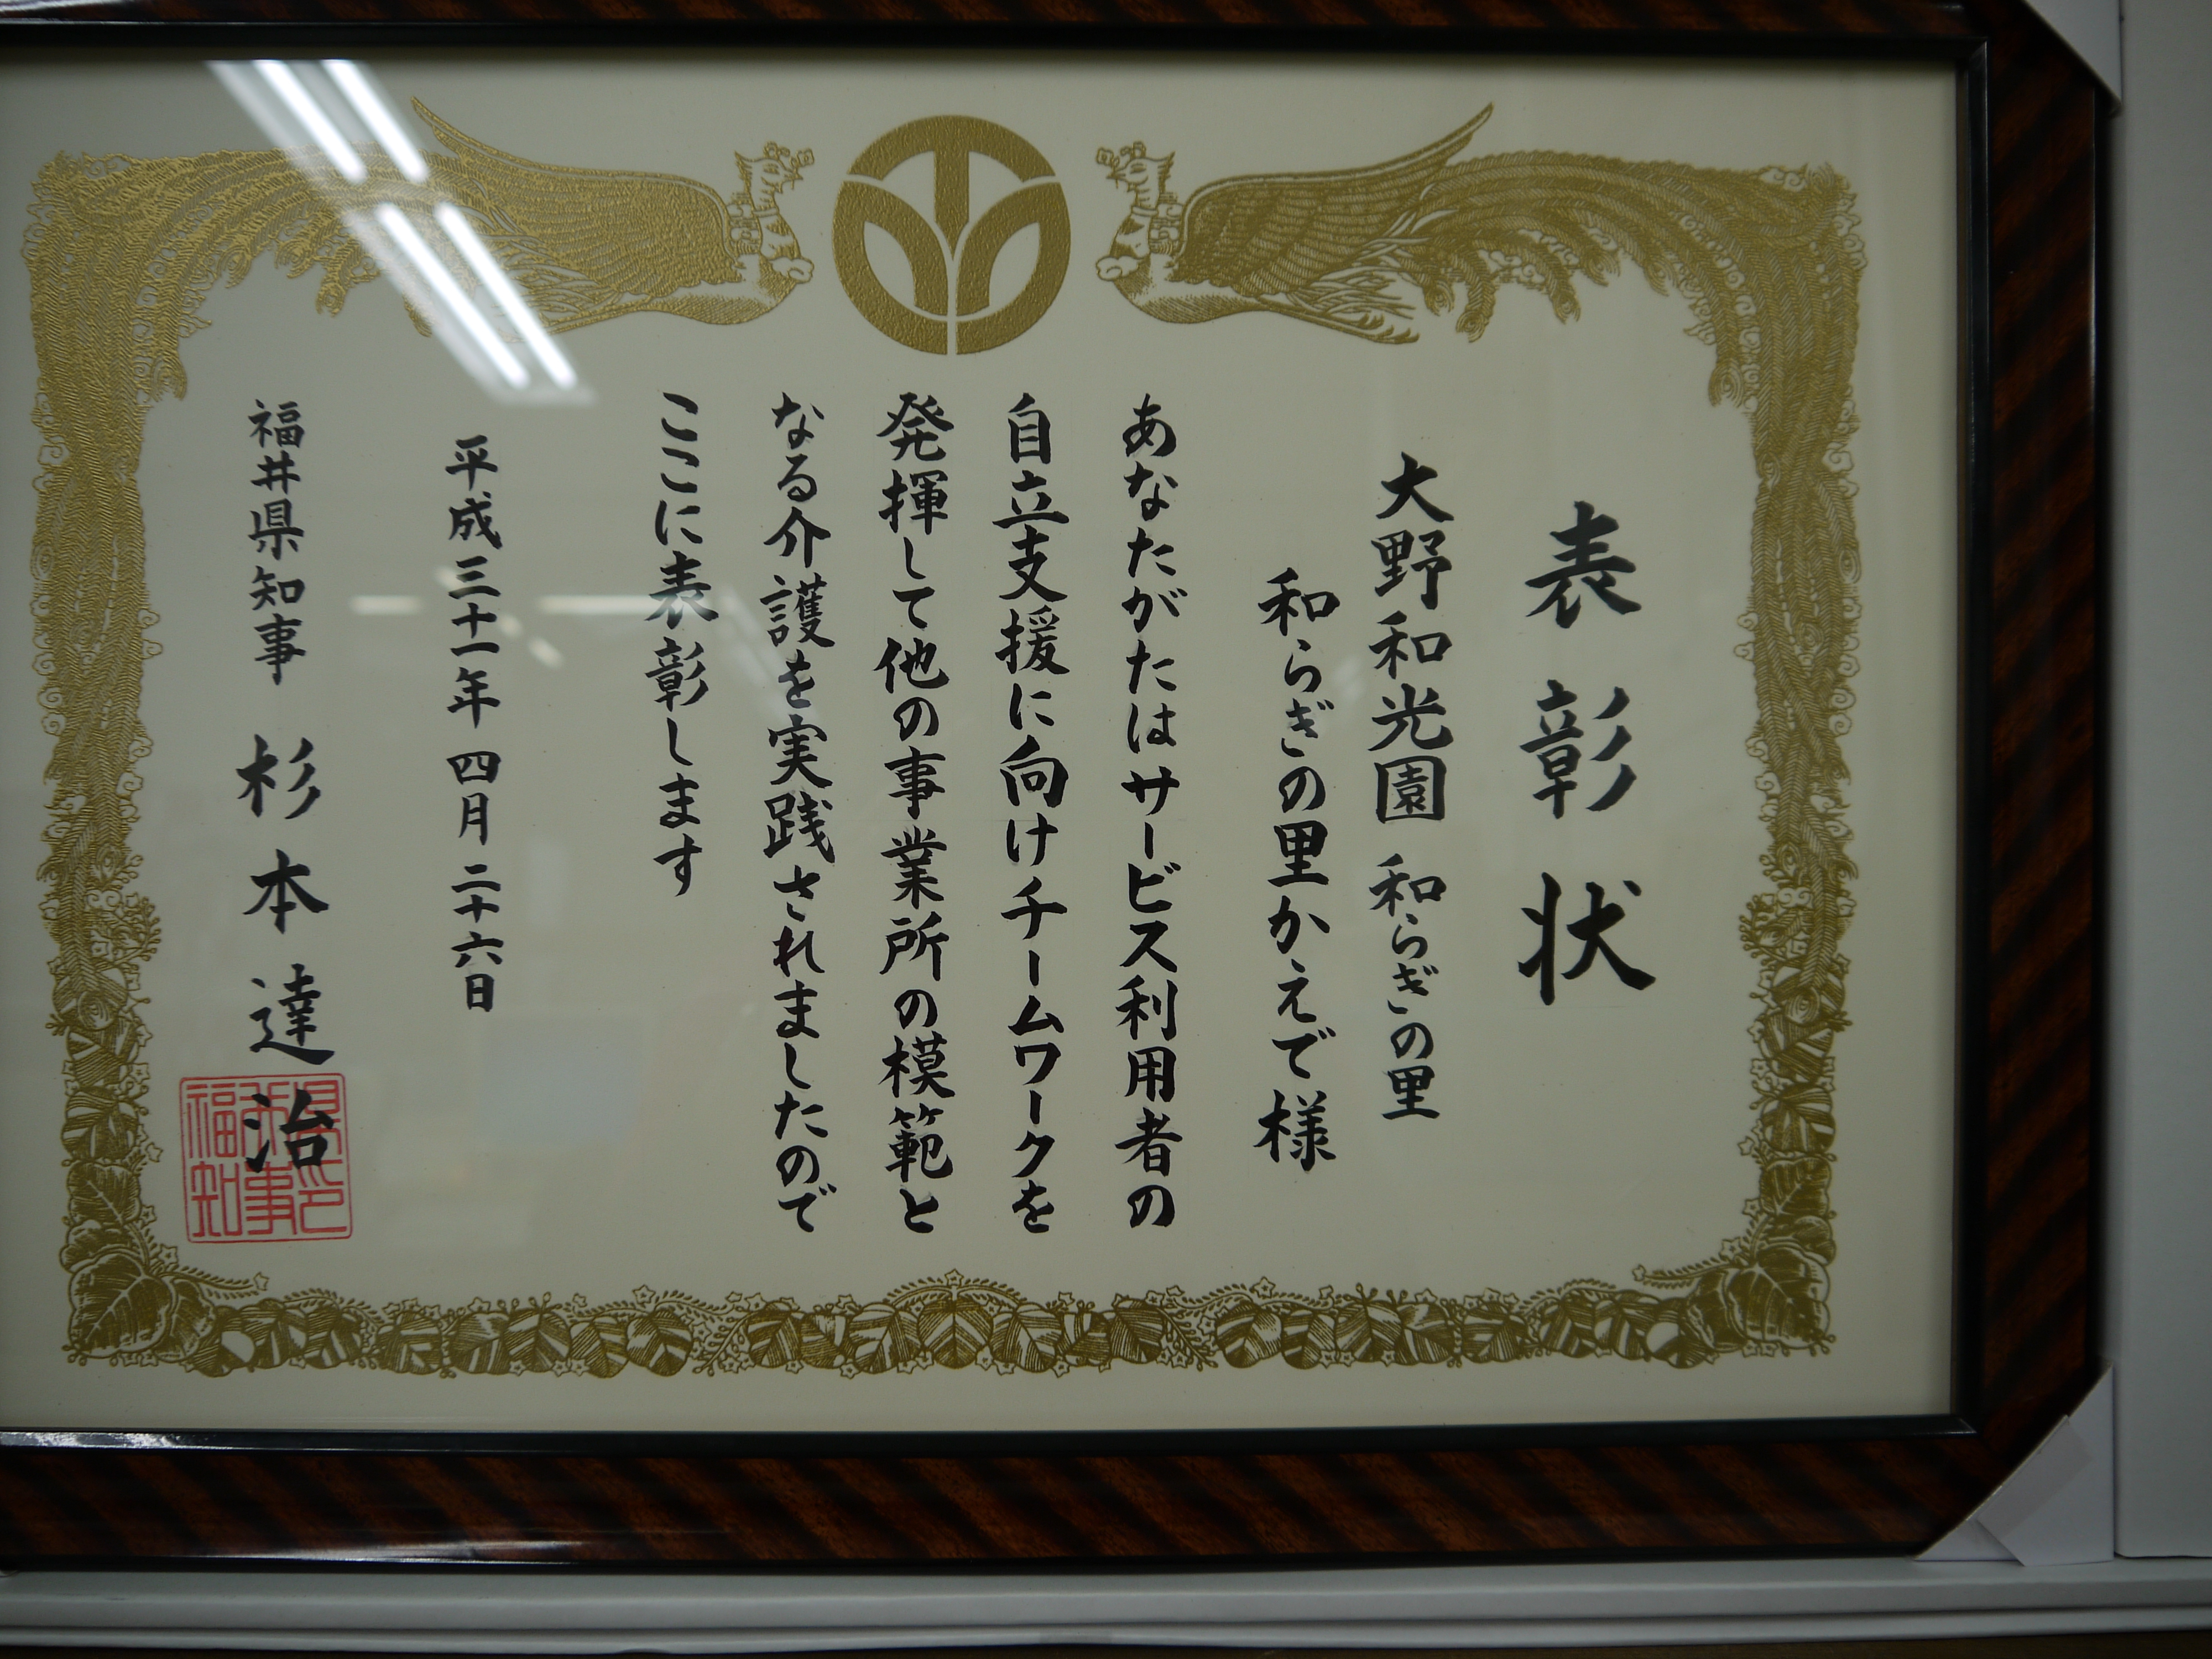 表彰状
大野和光園 和らぎの里
和らぎの里かえで様
あなたがたはサービス利用者の
自立支援に向けチームワークを
発揮して他の事業所の模範と
なる介護を実践されましたので
ここに表彰します
平成三十一年四月二十六日
福井県知事 杉本達治
県印
井事
福知